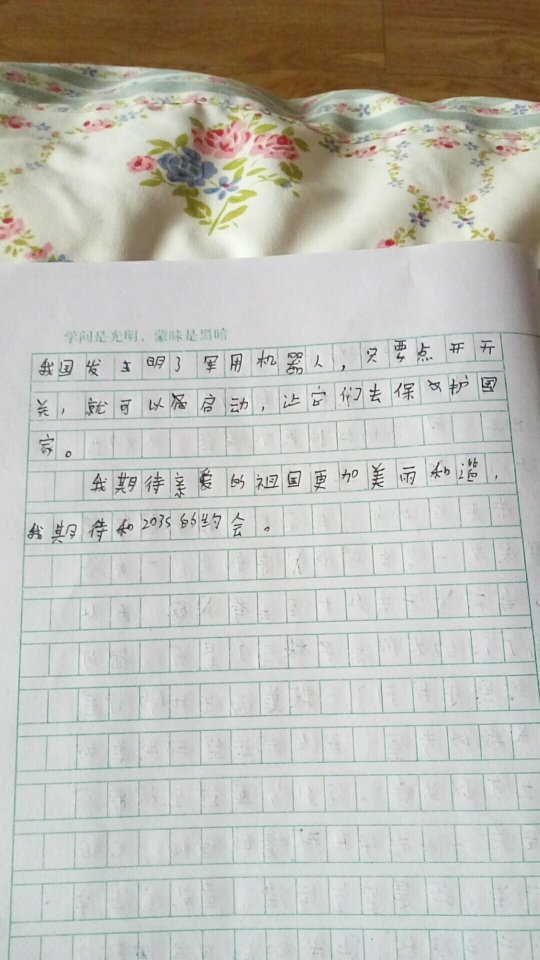 学问是光明、蒙昧是黑暗
我国发明了军用机器人，只要点开开
关，就可以启动，让它们去保护国
家。
我期待亲爱的祖国更加美丽和谐，
我期待和2035的约会。